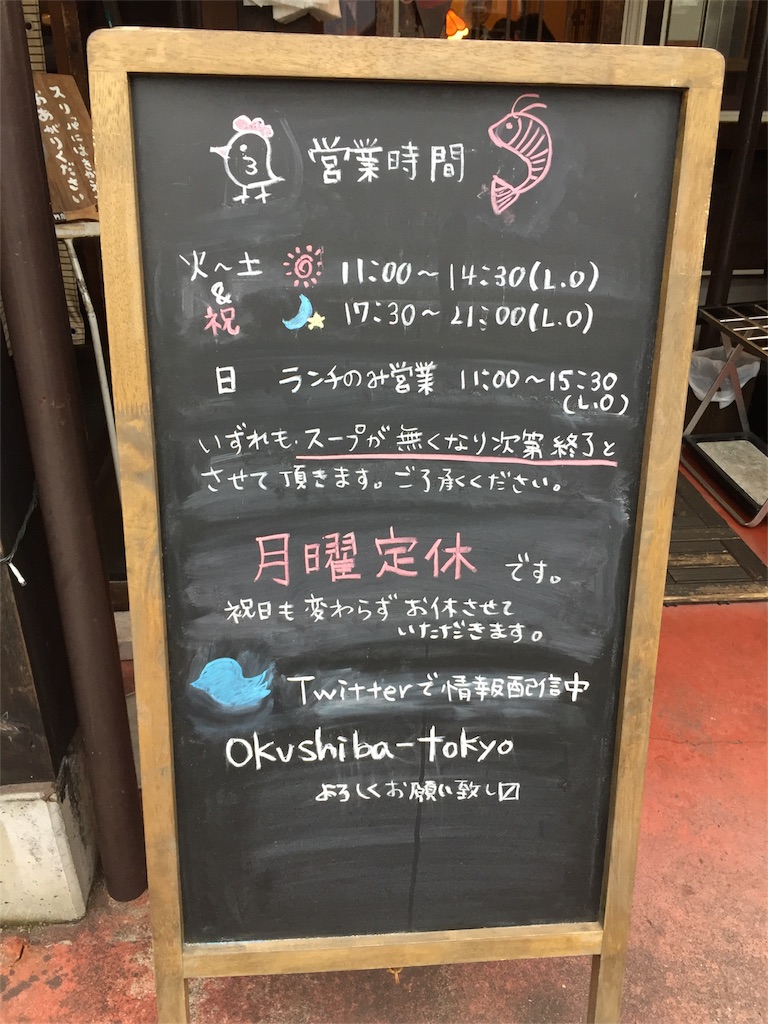 営業時間
火〜土 11:00〜14:30(L.O)
&
祝 17:30〜21:00(L.O)
日 ランチのみ営業 11:00〜15:30
(L.O)
いずれも、スープが無くなり次第終了と
させて頂きます。ご了承ください。
月曜定休 です。
祝日も変わらずお休させて
いただきます。
Twitterで情報配信中
Okushiba-tokyo
よろしくお願い致し〼